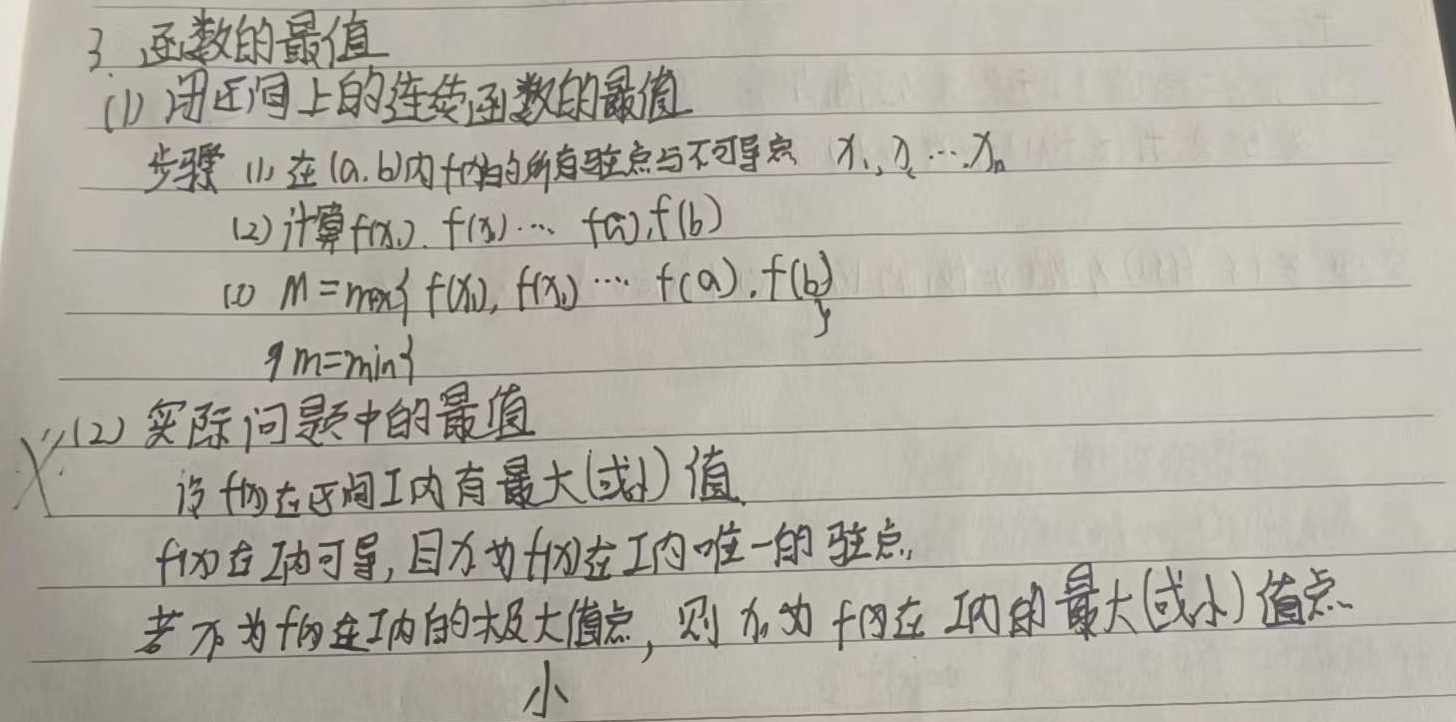 3. 函数的最值
(1) 闭区间上的连续函数的最值
步骤 (1) 在(a.b)内f(x)的所有驻点与不可导点 x₁, x₂ … xₙ
(2) 计算f(x₁). f(x₂) … f(a), f(b)
M=max{ f(x₁), f(x₂) … f(a), f(b) }
m=min{
(2) 实际问题中的最值
设 f(x)在区间I内有最大(或小)值
f(x)在I内可导, 且x₀为f(x)在I内唯一的驻点,
若x₀为f(x)在I内的极大值点, 则x₀为f(x)在I内的最大(或小)值点
小